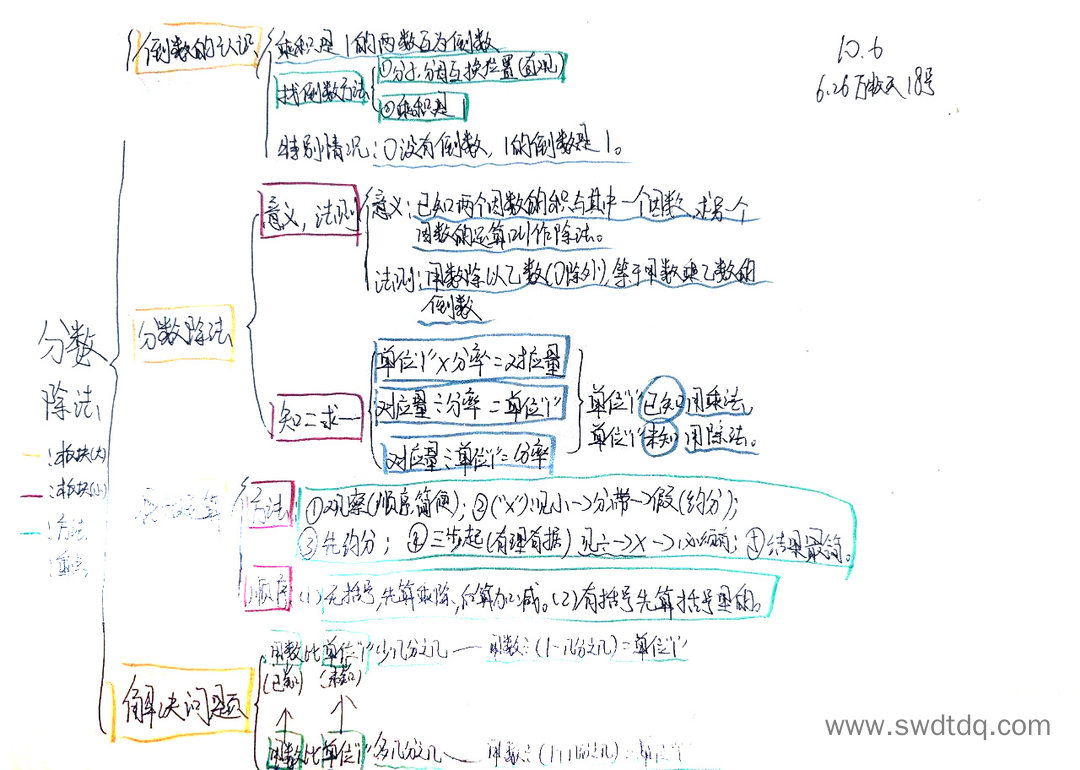 倒数的认识
乘积是1的两数互为倒数
找倒数方法
①分子、分母互换位置(直观)
②乘积是1
特别情况:0没有倒数,1的倒数是1。
10.6
6.26 18号
意义,法则
意义:已知两个因数的积与其中一个因数,求另一个
因数的运算叫作除法。
法则:甲数除以乙数(0除外),等于甲数乘乙数的
倒数
分数除法
分数
除法
知二求一
单位"1"×分率=对应量
对应量÷分率=单位"1"
对应量÷单位"1"=分率
单位"1"已知用乘法,
单位"1"未知用除法。
:板块(大)
:板块(小)
:方法
:重点
运算
方法:
①观察(顺序,简便);②("×"):见小→分,带→假(约分);
③先约分;④三步起(有理有据)见÷→×→必须有;⑤结果最简。
顺序
(1)无括号,先算乘除,后算加减。(2)有括号先算括号里的。
解决问题
甲数比单位"1"少几分之几—甲数÷(1-几分之几)=单位"1"
(已知) (未知)
甲数比单位"1"多几分之几—甲数÷(1+几分之几)=单位"1"
www.swdtdq.com